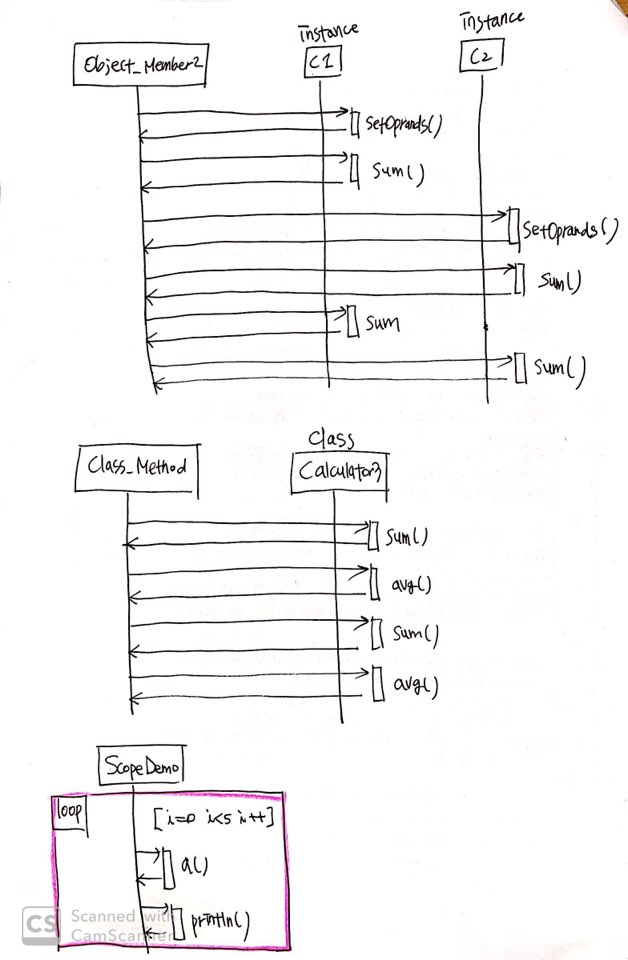 instance
instance
Object_Member2
C1
C2
SetOprands()
Sum()
SetOprands()
Sum()
Sum
Sum()
Class
Class_Method
Calculator3
Sum()
avg()
Sum()
avg()
ScopeDemo
loop
[i=0 i<5 i++]
a()
println()
CS
Scanned with
CamScanner